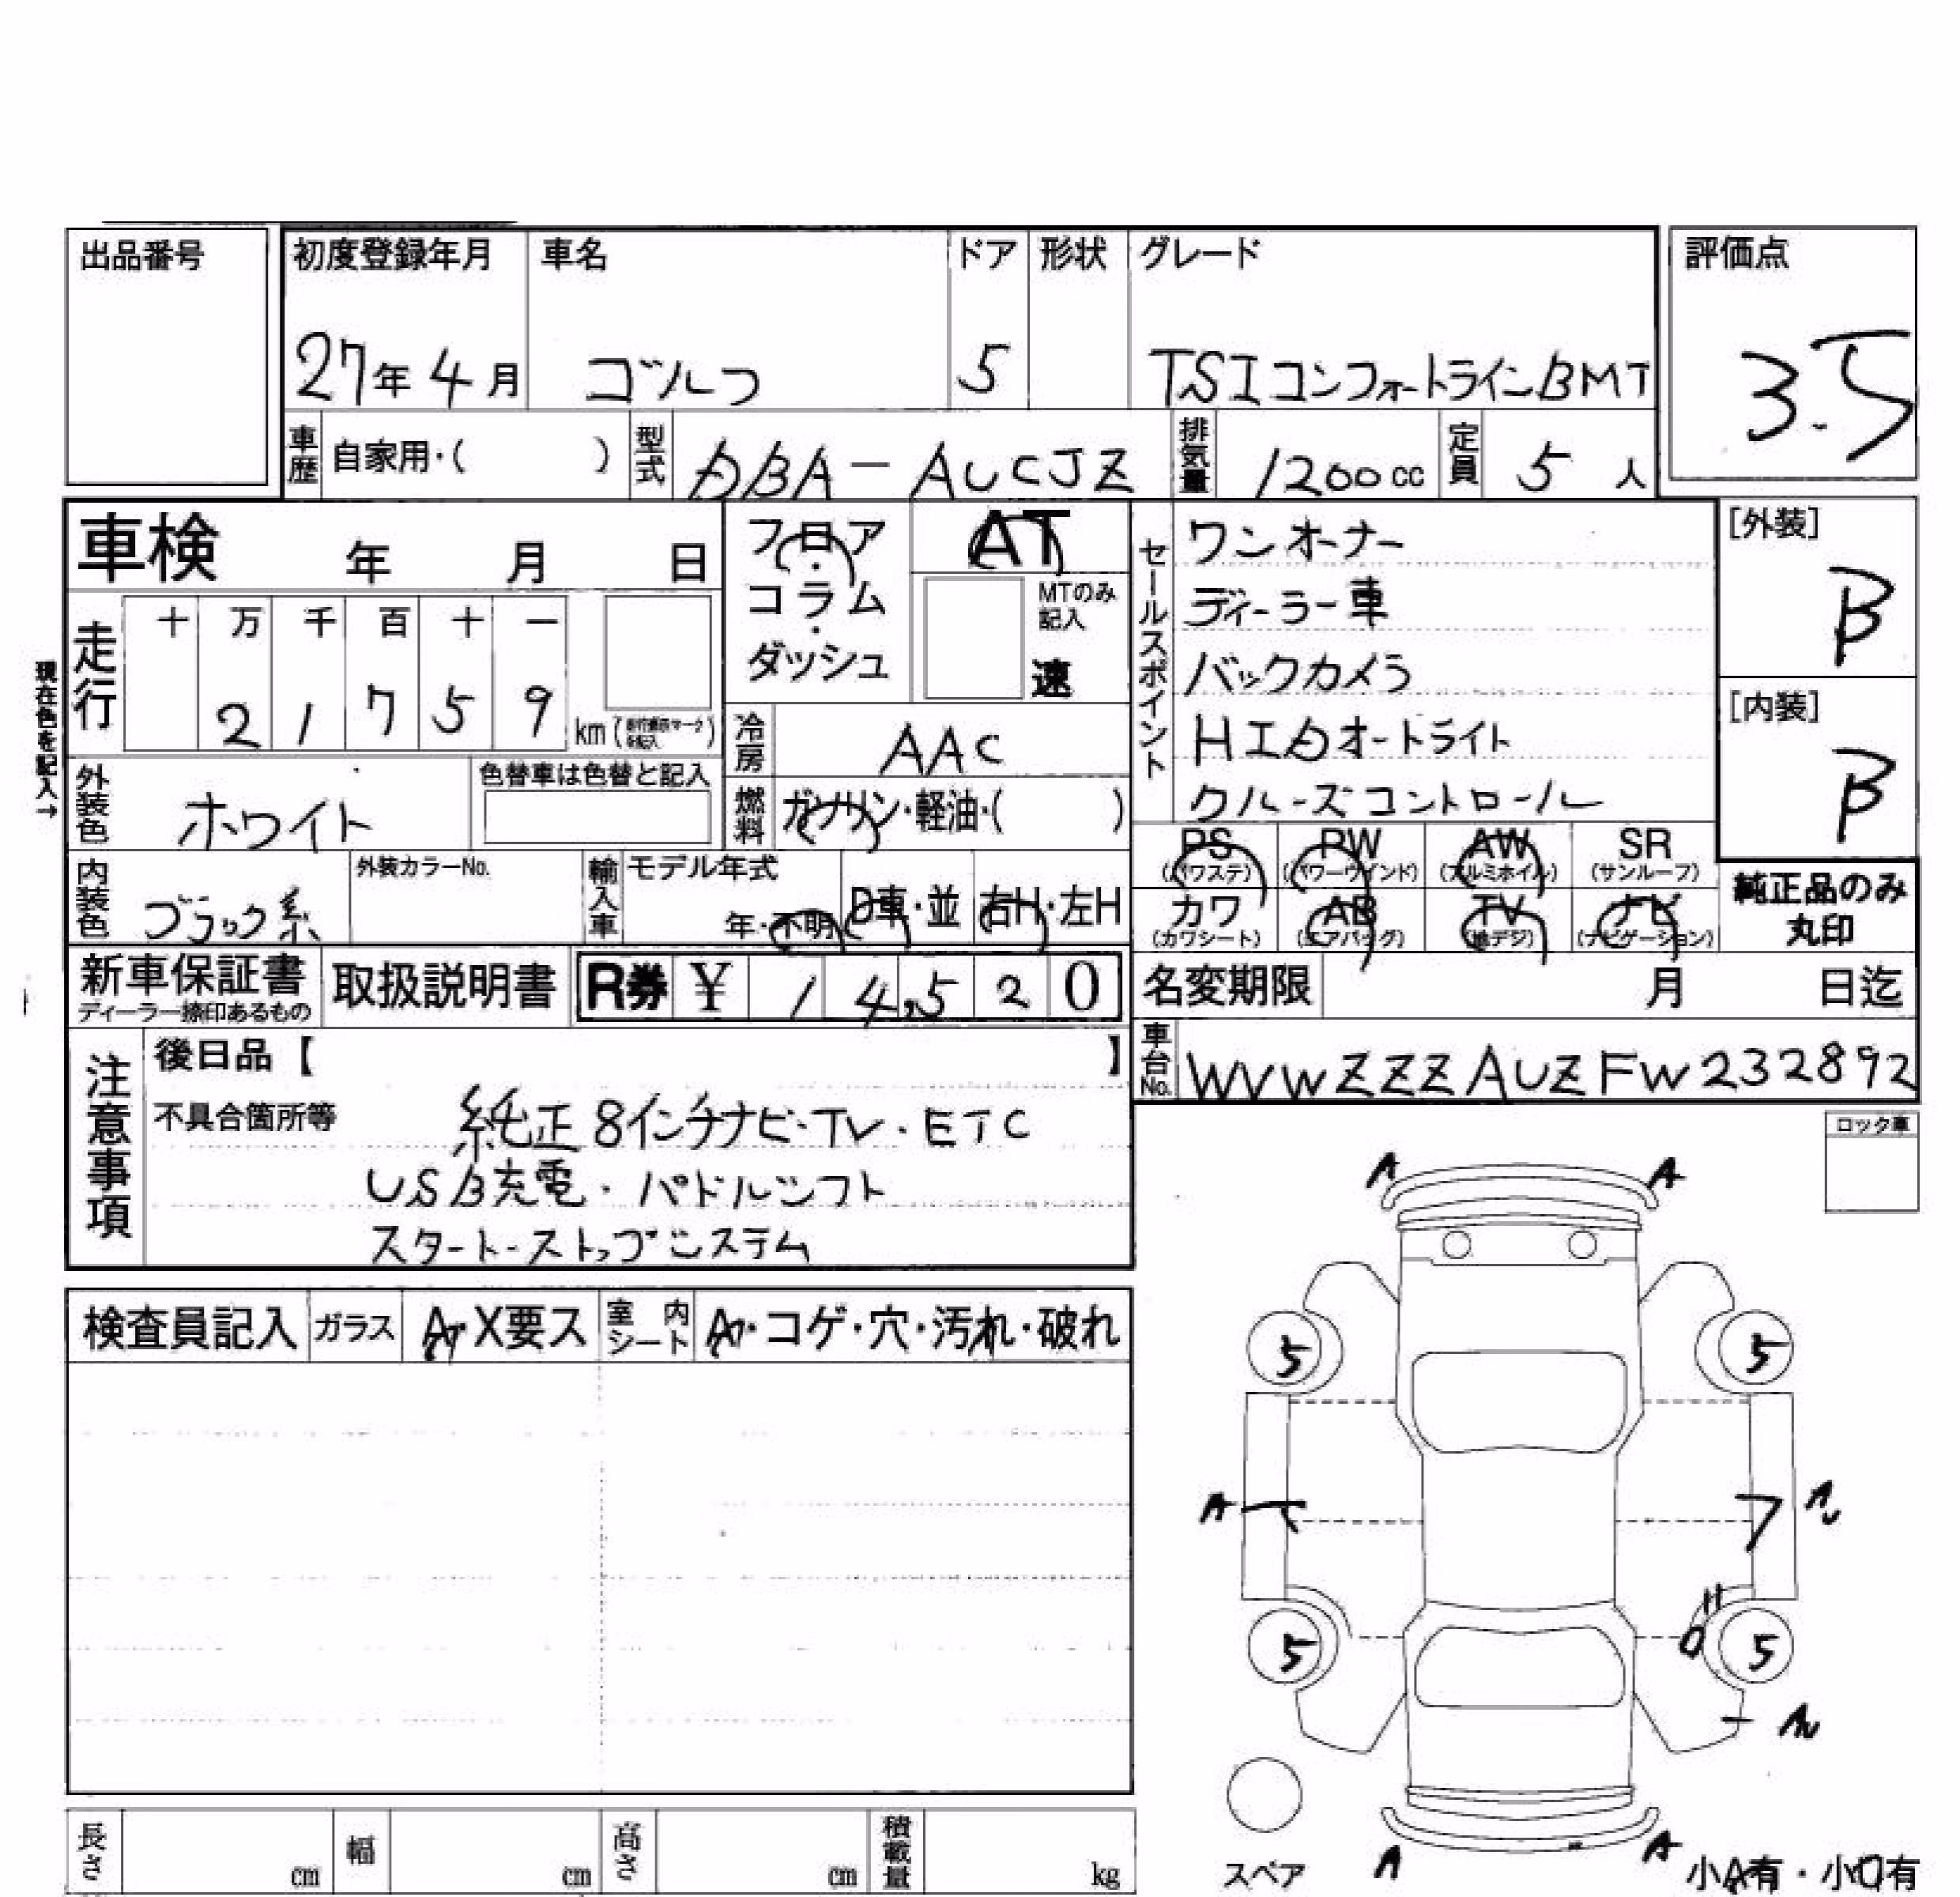 出品番号
初度登録年月 車名 ドア 形状 グレード
27年4月 ゴルフ 5 TSIコンフォートラインBMT
評価点
3.5
車歴 自家用・( ) 型式 DBA-AUCJZ 排気量 1200cc 定員 5人
車検 年 月 日
フロア・コラム・ダッシュ
AT
MTのみ記入
速
セールスポイント
ワンオーナー
ディーラー車
バックカメラ
HIDオートライト
クルーズコントロール
[外装]
B
[内装]
B
現在色を記入→
走行 十 万 千 百 十 一
2 1 7 5 9 km
冷房 AAC
外装色 ホワイト 色替車は色替と記入
燃料 ガソリン・軽油・( )
内装色 ブラック系 外装カラーNo.
輸入車 モデル年式 年・不明 D車・並 右H・左H
PS (パワステ) PW (パワーウインド) AW (アルミホイル) SR (サンルーフ)
カワ (カワシート) AB (エアバッグ) TV (地デジ) ナビ (ナビゲーション)
純正品のみ
丸印
新車保証書 取扱説明書 R券 ¥ 14,520
ディーラー捺印あるもの
名変期限 月 日迄
車台No. WVWZZZAUZFW232892
注意事項
後日品【 】
不具合箇所等 純正8インチナビ・TV・ETC
USB充電・パドルシフト
スタート・ストップシステム
ロック車
検査員記入 ガラス A・X要ス 室内シート A・コゲ・穴・汚れ・破れ
A A
5 5
A
5 5
A A
スペア
小A有・小O有
長さ cm 幅 cm 高さ cm 積載量 kg